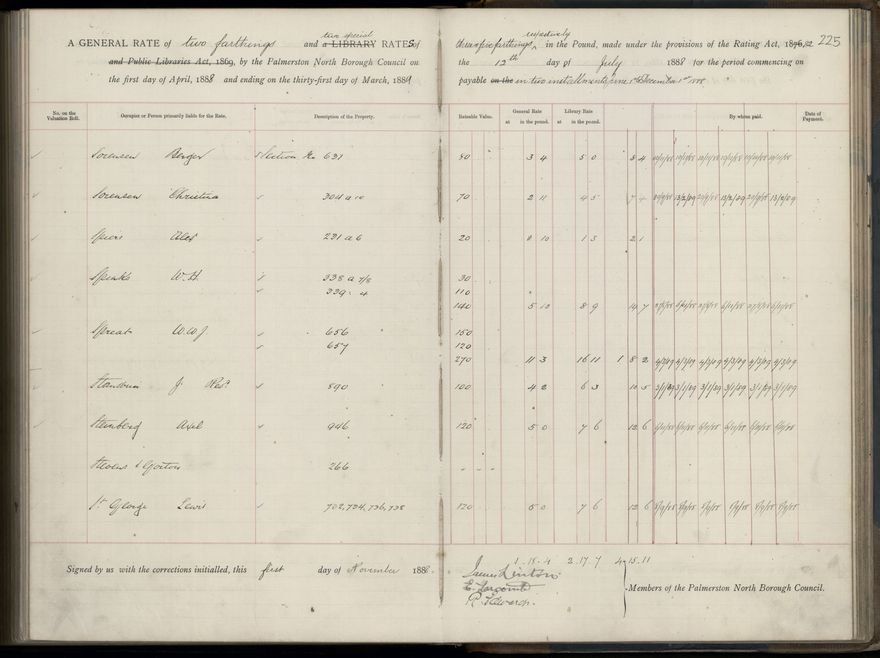 A GENERAL RATE of two farthings and a LIBRARY two special RATES of three & five farthings respectively in the Pound, made under the provisions of the Rating Act, 1876, 82 225
and Public Libraries Act, 1869, by the Palmerston North Borough Council on the 12th day of July 1888 for the period commencing on
the first day of April, 1888 and ending on the thirty-first day of March, 1889 payable on the in two installments December 1st 1888
No. on the Valuation Roll. Occupier or Person primarily liable for the Rate. Description of the Property. Rateable Value. General Rate at in the pound. Library Rate at in the pound. By whom paid. Date of Payment.
Sorensen Berger Section No 631 80 3 4 5 0 8 4
Sorensen Christina 304 a 10 70 2 11 4 5 7 4 13/2/89 13/2/89 13/2/89
Spiers Alex 231 a 6 20 0 10 1 3 2 1
Speaks W. H. 338 a 7/8 30
339 . 4 110
140 5 10 8 9 14 7
Spreat W. W. J 656 150
657 120
270 11 3 16 11 1 8 2 4/3/89 4/3/89 4/3/89 4/3/89 4/3/89 4/3/89
J 890 100 4 2 6 3 10 5 3/1/89 3/1/89 3/1/89 3/1/89 3/1/89 3/1/89
Steinberg Axel 946 120 5 0 7 6 12 6
Stevens & Gorton 266 - - -
St George Lewis 702, 734, 736, 738 120 5 0 7 6 12 6
1.18.4 2.17.7 4.15.11
Signed by us with the corrections initialled, this first day of November 1888. James Linton
E. Larcomb
R. Edwards.
Members of the Palmerston North Borough Council.